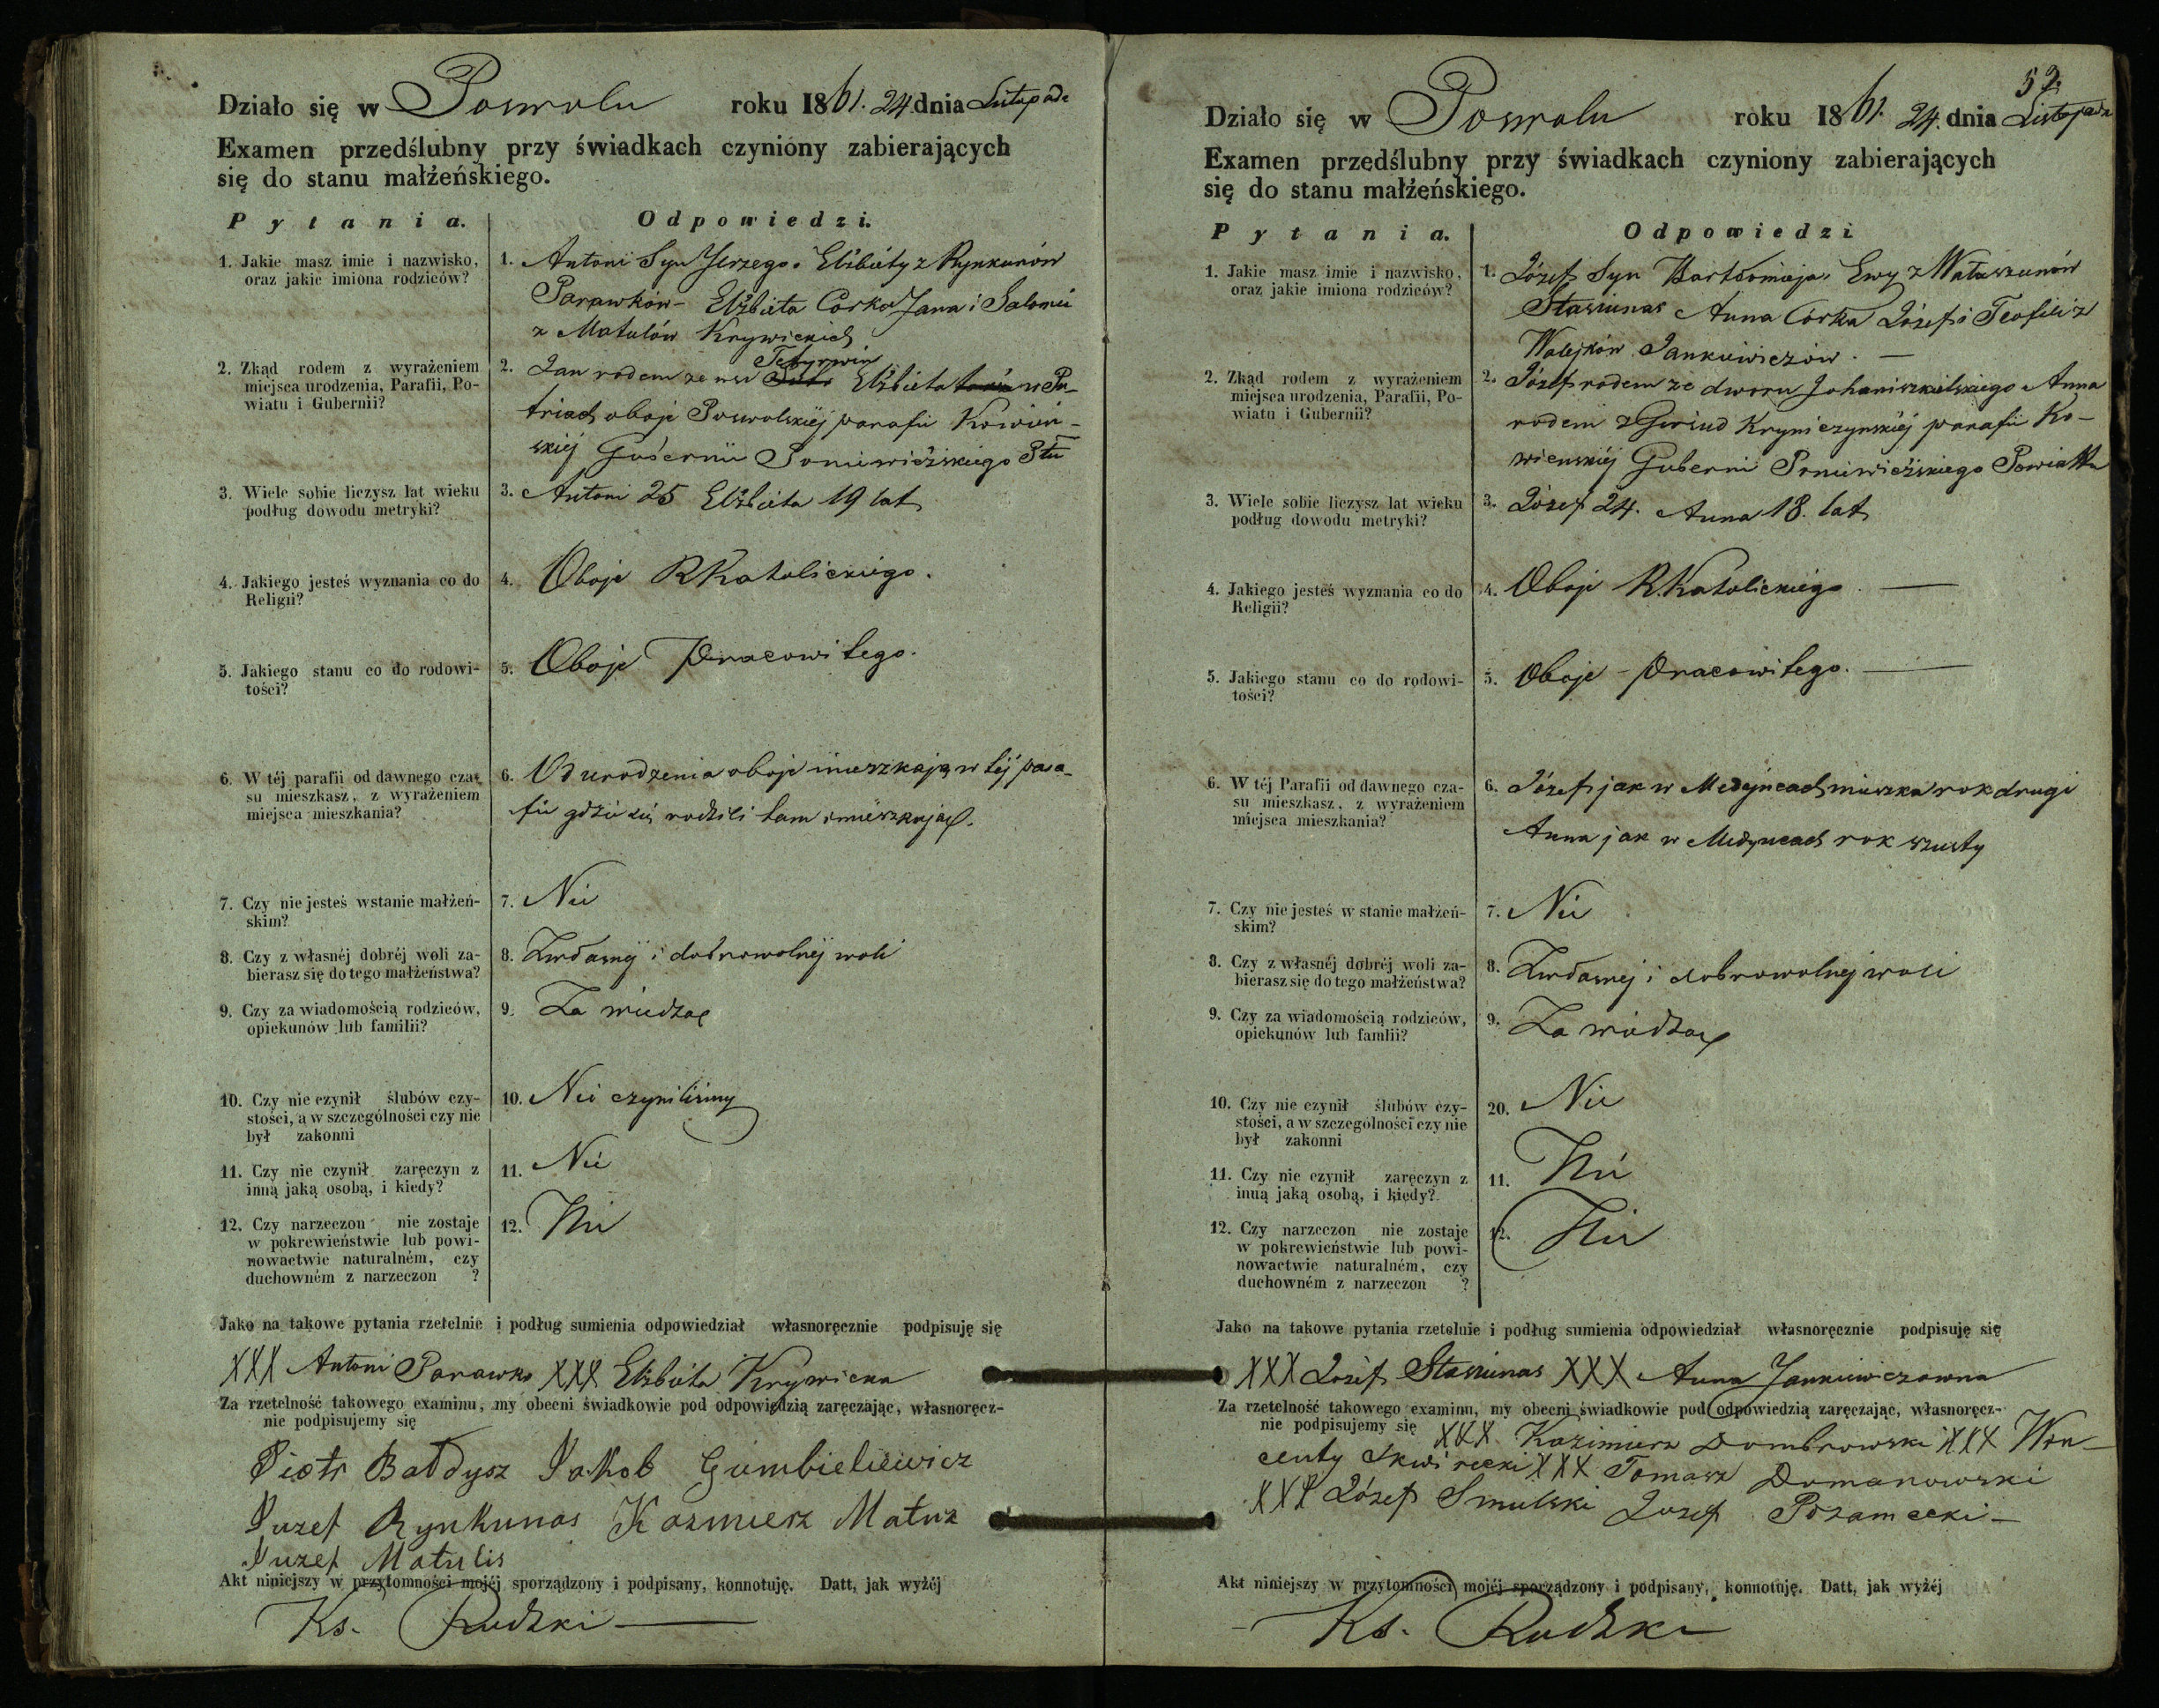 Działo się w Poswolu roku 1861. 24 dnia Listopada
Examen przedślubny przy świadkach czyniony zabierających
się do stanu małżeńskiego.
Pytania. Odpowiedzi.
1. Jakie masz imie i nazwisko,
oraz jakie imiona rodziców?
1. Antoni Syn Jerzego i Elżbiety z Rynkunów
Parawków – Elżbieta Córka Jana i Salomei
z Matulów Krywickich
2. Zkąd rodem z wyrażeniem
miejsca urodzenia, Parafii, Po-
wiatu i Gubernii?
2. Jan rodem ze wsi Tetyrwin Elżbieta w Pu-
triach oboje Poswolskiéj parafii Kowień-
skiéj Gubernii Poniewieżskiego Ptu
3. Wiele sobie liczysz lat wieku
podług dowodu metryki?
3. Antoni 25 Elżbieta 19 lat
4. Jakiego jesteś wyznania co do
Religii?
4. Oboje RKatolickiego.
5. Jakiego stanu co do rodowi-
tości?
5. Oboje Pracowitego.
6. W téj parafii od dawnego cza-
su mieszkasz, z wyrażeniem
miejsca mieszkania?
6. Od urodzenia oboje mieszkają w téj para-
fii gdzie się rodzili tam i mieszkają.
7. Czy nie jesteś wstanie małżeń-
skim?
7. Nie
8. Czy z własnéj dobréj woli za-
bierasz się do tego małżeństwa?
8. Zwłasnéj i dobrowolnéj woli
9. Czy za wiadomością rodziców,
opiekunów lub familii?
9. Za wiedzą
10. Czy nie czynił ślubów czy-
stości, a w szczególności czy nie
był zakonni
10. Nie czyniliśmy
11. Czy nie czynił zaręczyn z
inną jaką osobą, i kiedy?
11. Nie
12. Czy narzeczon nie zostaje
w pokrewieństwie lub powi-
nowactwie naturalném, czy
duchowném z narzeczon ?
12. Nie
Jako na takowe pytania rzetelnie i podług sumienia odpowiedział własnoręcznie podpisuję się
XXX Antoni Parawko XXX Elżbieta Krywicka
Za rzetelność takowego examinu, my obecni świadkowie pod odpowiedzią zaręczając, własnoręcz-
nie podpisujemy się
Piotr Bałdysz Jakob Gumbielewicz
Juzef Rynkunas Kazmierz Matuz
Juzef Matulis
Akt niniejszy w przytomności mojéj sporządzony i podpisany, konnotuję. Datt, jak wyżéj
Ks. Rudzki
52.
Działo się w Poswolu roku 1861. 24. dnia Listopada
Examen przedślubny przy świadkach czyniony zabierających
się do stanu małżeńskiego.
Pytania. Odpowiedzi
1. Jakie masz imie i nazwisko,
oraz jakie imiona rodziców?
1. Józef Syn Bartłomieja i Ewy z Matuszunów
Stasiunas Anna Córka Józefa i Teofili z
Walejków Jankiewiczów. —
2. Zkąd rodem z wyrażeniem
miejsca urodzenia, Parafii, Po-
wiatu i Gubernii?
2. Józef rodem ze dworu Johaniszkielskiego Anna
rodem z Gwiud Kryniczynskiéj parafii Ko-
wienskiéj Guberni Poniewieżskiego Powiattu
3. Wiele sobie liczysz lat wieku
podług dowodu metryki?
3. Józef 24. Anna 18. lat
4. Jakiego jesteś wyznania co do
Religii?
4. Oboje R.Katolickiego —
5. Jakiego stanu co do rodowi-
tości?
5. Oboje – Pracowitego. —
6. W téj Parafii od dawnego cza-
su mieszkasz, z wyrażeniem
miejsca mieszkania?
6. Józef jak w Medejncach mieszka rok drugi
Anna jak w Medyncach rok szusty
7. Czy nie jesteś w stanie małżeń-
skim?
7. Nie
8. Czy z własnéj dobréj woli za-
bierasz się do tego małżeństwa?
8. Zwłasnej i dobrowolnej woli
9. Czy za wiadomością rodziców,
opiekunów lub famlii?
9. Za wiedzą
10. Czy nie czynił ślubów czy-
stości, a w szczególności czy nie
był zakonni
20. Nie
11. Czy nie czynił zaręczyn z
inną jaką osobą, i kiedy?
11. Nie
12. Czy narzeczon nie zostaje
w pokrewieństwie lub powi-
nowactwie naturalném, czy
duchowném z narzeczon ?
12. Nie
Jako na takowe pytania rzetelnie i podług sumienia odpowiedział własnoręcznie podpisuję się
XXX Józef Stasiunas XXX Anna Jankiewiczowna
Za rzetelność takowego examinu, my obecni świadkowie pod odpowiedzią zaręczając, własnoręcz-
nie podpisujemy się XXX Kazimierz Dombrowski XXX Win-
centy Skwirecki XXX Tomasz Domanowski
XXX Józef Smulski Jozef Pożamecki —
Akt niniejszy w przytomności mojéj sporządzony i podpisany, konnotuję. Datt, jak wyżéj
Ks. Rudzki